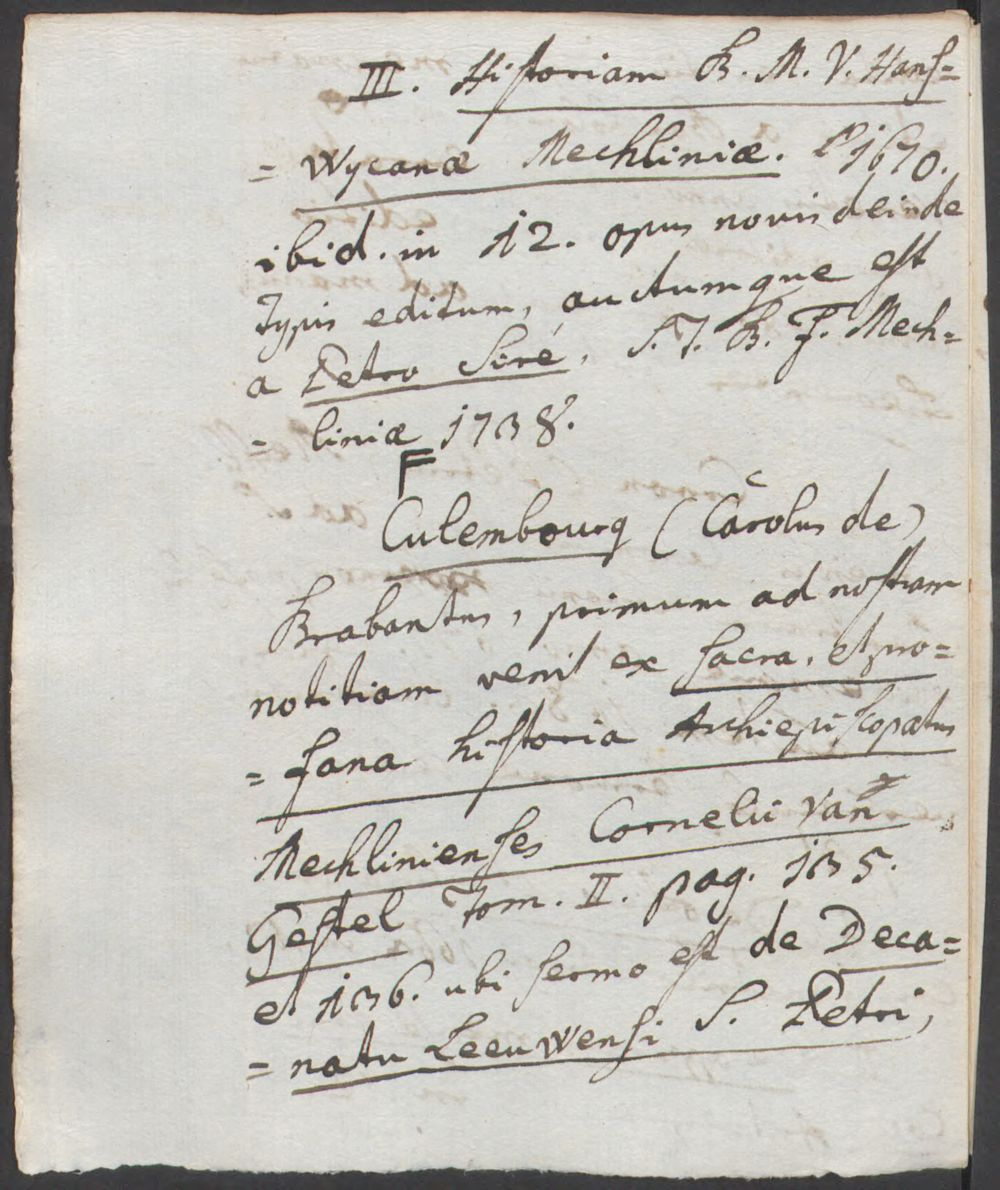 III. Historiam B. M. V. Hans=
= wycanæ Mechliniæ. 1670.
ibid. in 12. opus novis deinde
typis editum, auctumque est
a Petro Siré, S.J. B. F. Mech=
= liniæ 1738.
F
Culembourg (Carolus de)
Brabantus, primum ad nostram
notitiam venit ex sacra, et pro=
= fana historia Archiepiscopatus
Mechlinienses Cornelii van
Gestel Tom. II. pag. 135.
et 136. ubi sermo est de Deca=
= natu Leeuwensi S. Petri,